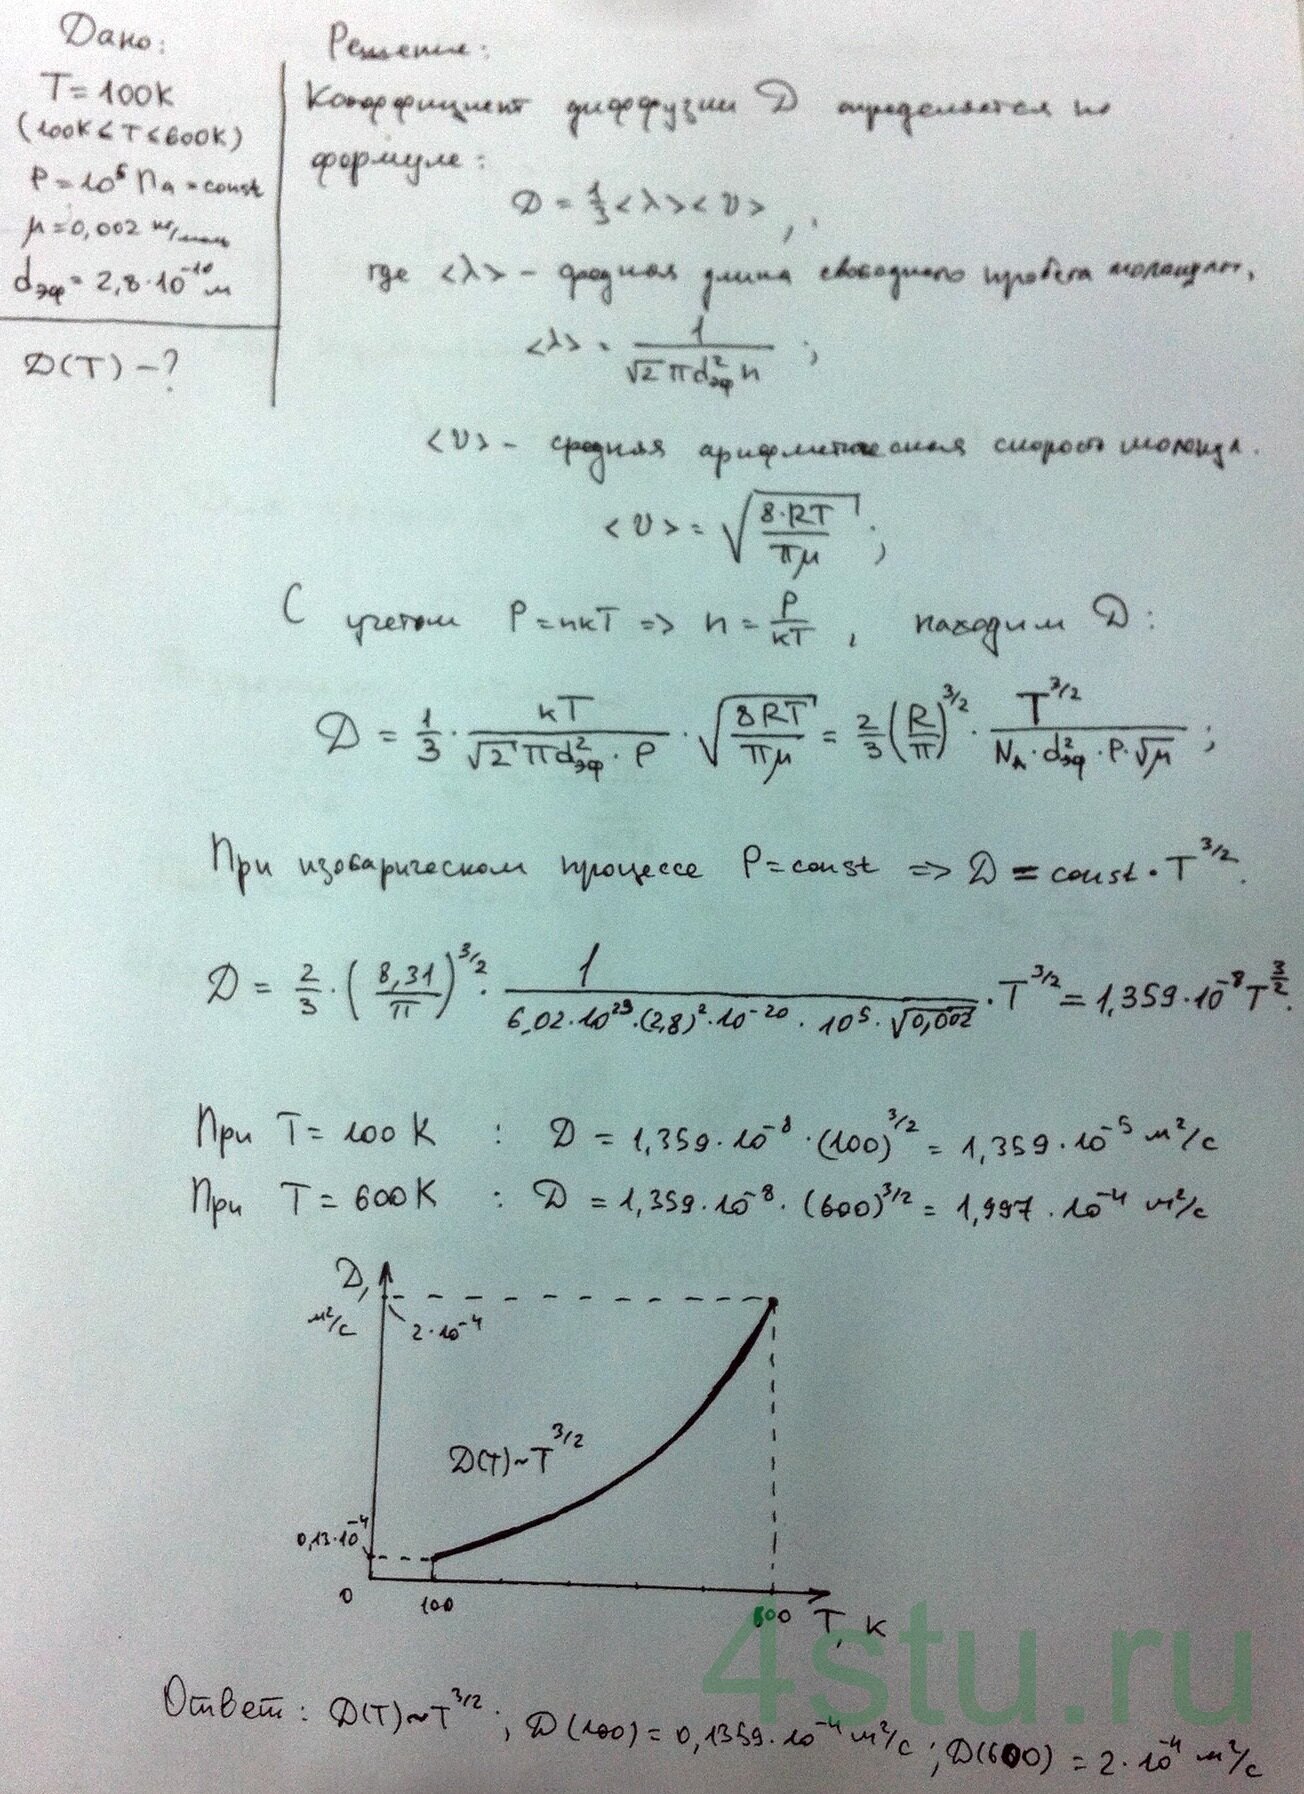 Дано:
T = 100K
(100K ≤ T ≤ 600K)
P = 10⁵ Па = const
μ = 0,002 кг/моль
dэф = 2,8·10⁻¹⁰ м
D(T) – ?
Решение:
Коэффициент диффузии D определяется по
формуле:
D = 1/3 <λ><υ> ,
где <λ> – средняя длина свободного пробега молекулы,
<λ> = 1/(√2 πd²эф n) ;
<υ> – средняя арифметическая скорость молекул.
<υ> = √(8·RT/(πμ)) ;
С учетом P = nkT => n = P/kT , находим D:
D = 1/3 · kT/(√2 πd²эф · P) · √(8RT/(πμ)) = 2/3 (R/π)^3/2 · T^3/2/(N_A · d²эф · P · √μ) ;
При изобарическом процессе P = const => D = const · T^3/2.
D = 2/3 · (8,31/π)^3/2 · 1/(6,02·10²³·(2,8)²·10⁻²⁰ · 10⁵ · √0,002) · T^3/2 = 1,359·10⁻⁸ T^3/2.
При T = 100 K : D = 1,359·10⁻⁸ · (100)^3/2 = 1,359·10⁻⁵ м²/с
При T = 600K : D = 1,359·10⁻⁸ · (600)^3/2 = 1,997·10⁻⁴ м²/с
D,
м²/с
2·10⁻⁴
D(T)~T^3/2
0,13·10⁻⁴
0 100 600 T, K
4stu.ru
Ответ: D(T)~T^3/2 ; D(100) = 0,1359·10⁻⁴ м²/с ; D(600) = 2·10⁻⁴ м²/с